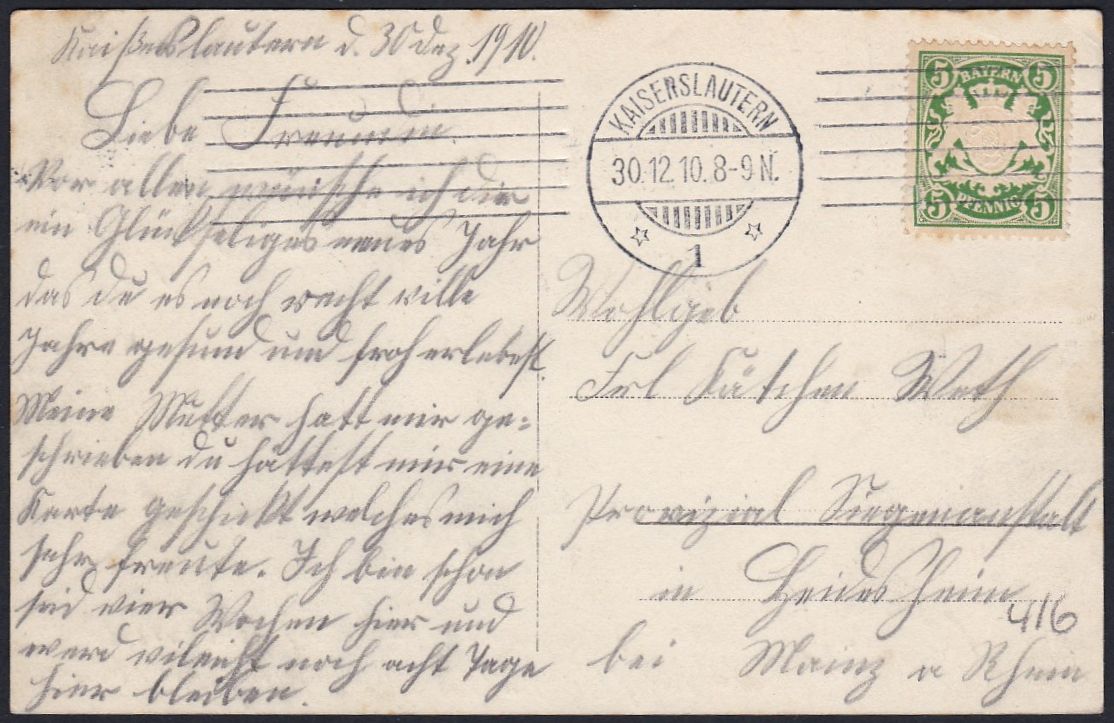 Kaißerslautern d. 30 Dez 1910.
Liebe Freundin.
Vor allen wünsche ich dir
ein Glückseliges neues Jahr
das du es noch recht ville
Jahre gesund und froh erlebest.
Meine Mutter hatt mir ge=
schrieben du hättest mir eine
Karte geschickt welches mich
sehr freute. Ich bin schon
seid vier Wochen hier und
werd vileicht noch acht Tage
hier bleiben.
KAISERSLAUTERN
30.12.10.8-9N.
1
5 BAYERN 5
5 PFENNIG 5
Wohlgeb
Frl Kätchen Weth
Provizial Siegenanstalt
in Heidesheim
416
bei Mainz a Rhein